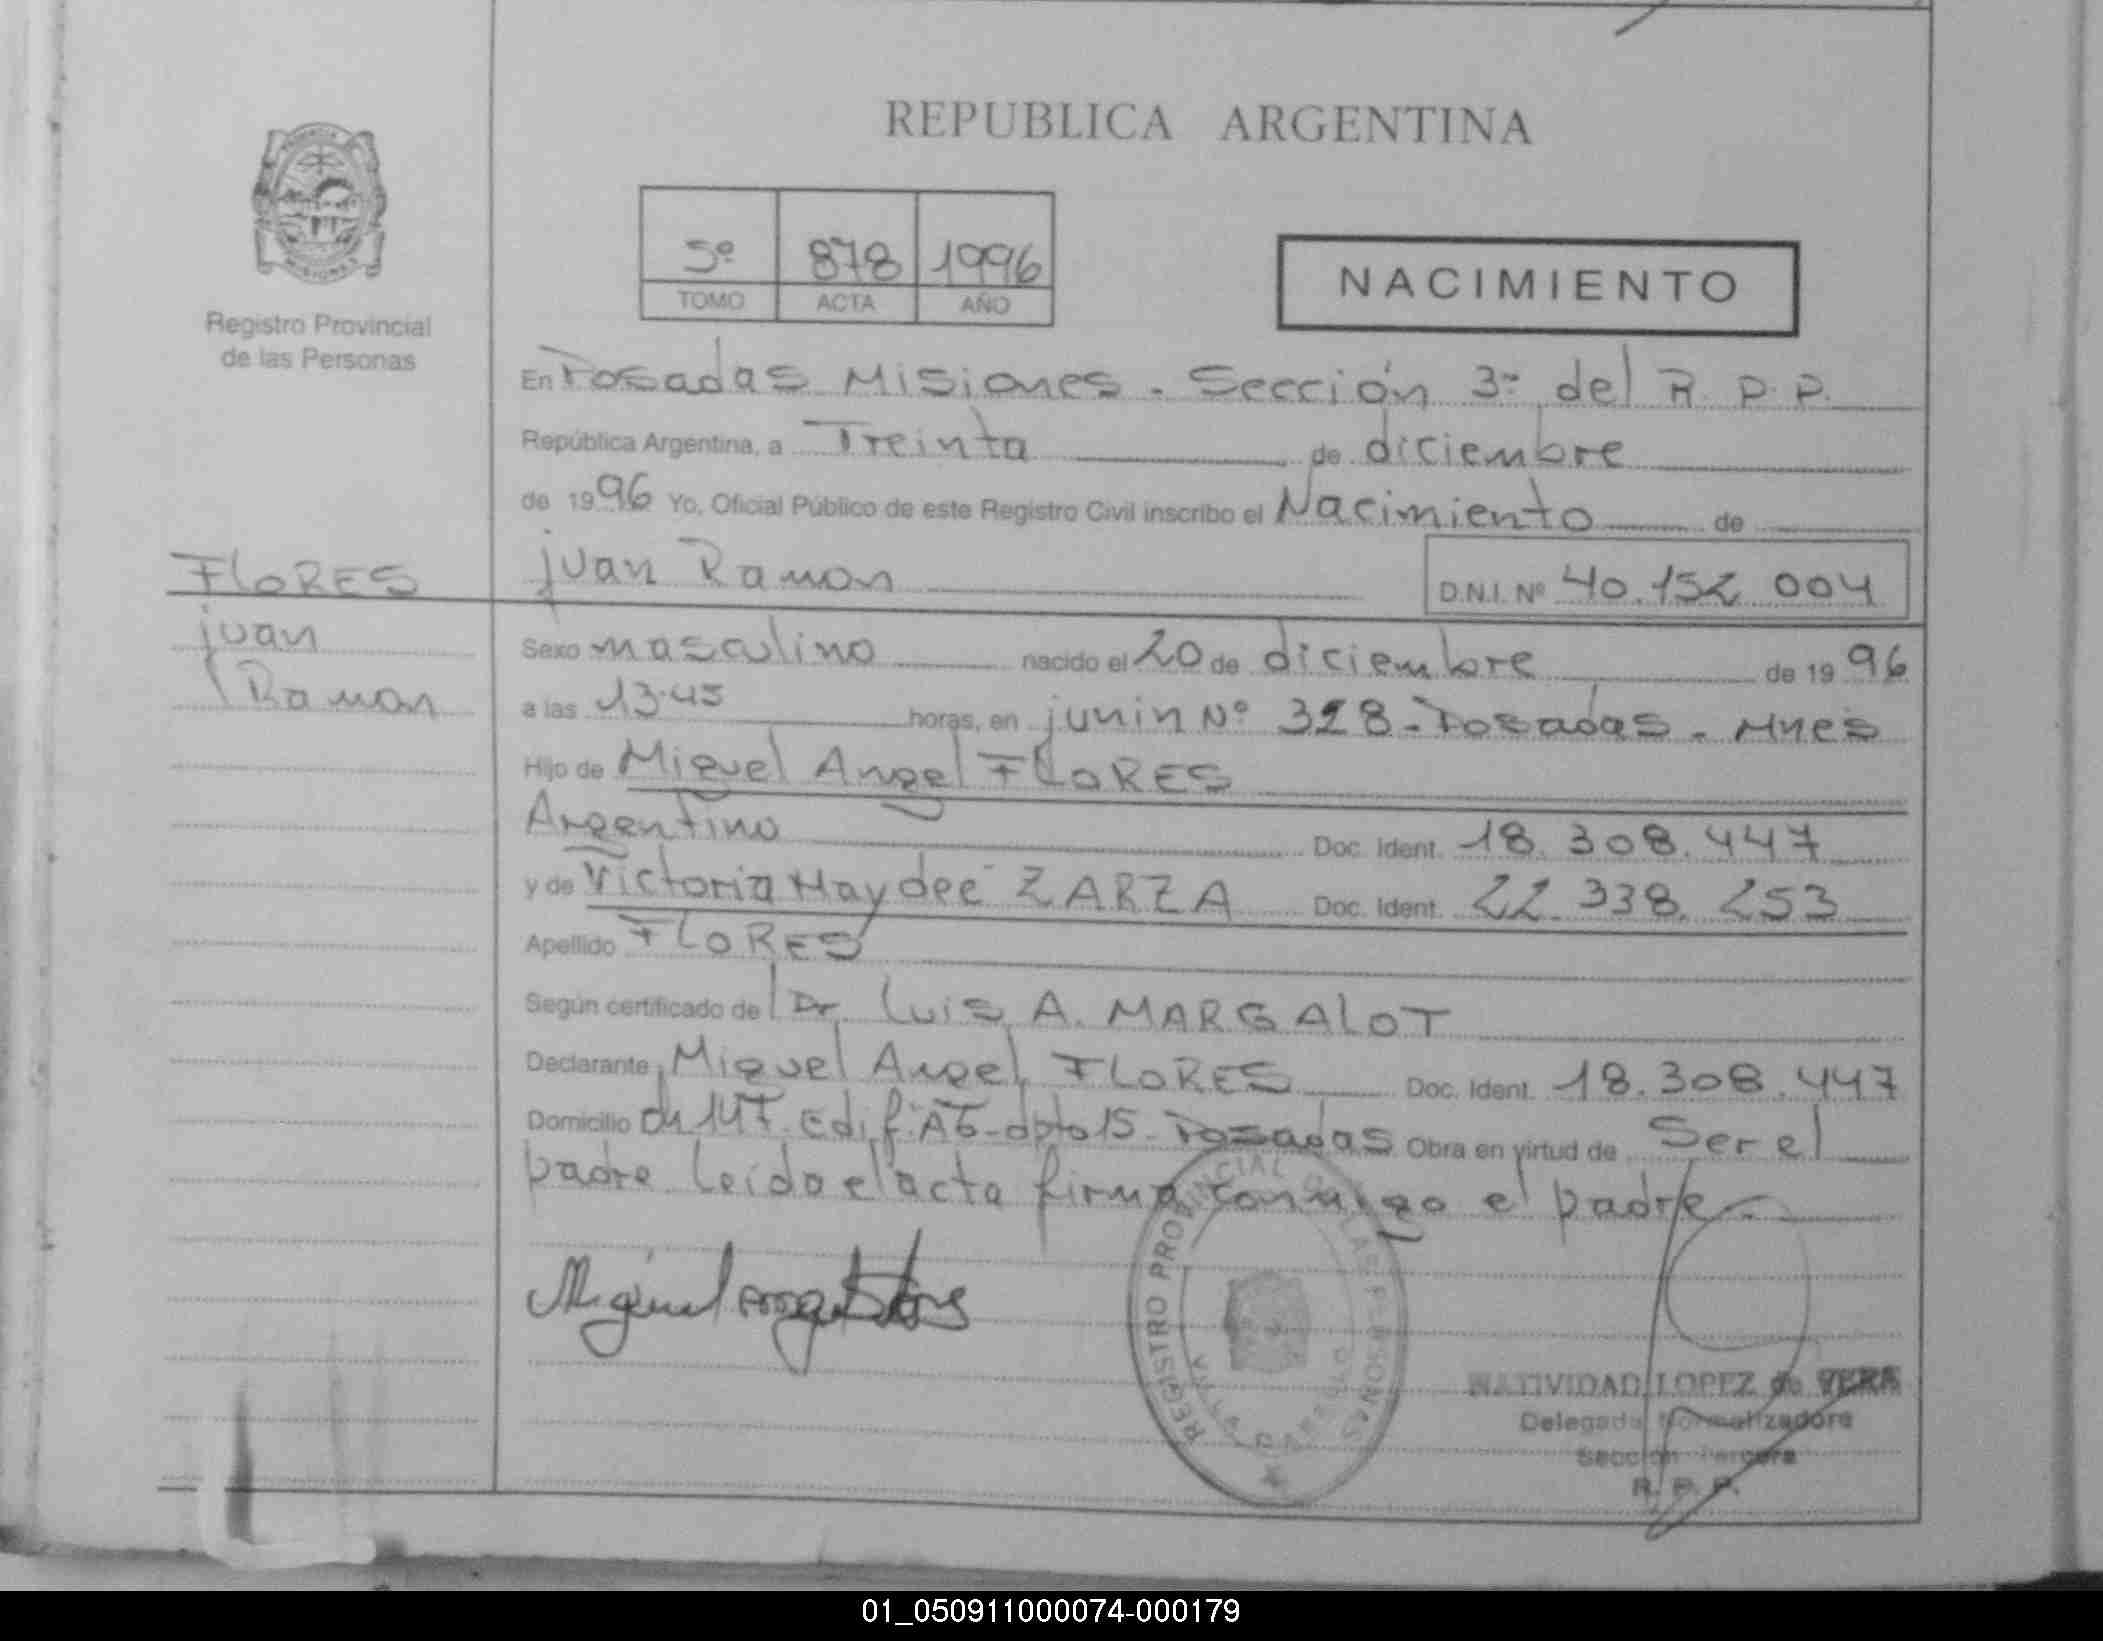 REPUBLICA ARGENTINA
PROVINCIA
MISIONES
Registro Provincial
de las Personas
5º 878 1996
TOMO ACTA AÑO
NACIMIENTO
En Posadas Misiones - Sección 3ª del R. P. P.
República Argentina, a Treinta de diciembre
de 1996 Yo, Oficial Público de este Registro Civil inscribo el Nacimiento de
juan Ramon D.N.I. Nº 40.152 004
FLORES
juan
Ramon
Sexo masculino nacido el 20 de diciembre de 1996
a las 13.45 horas, en junin Nº 328 - Posadas - Mnes
Hijo de Miguel Angel FLORES
Argentino Doc. Ident. 18.308.447
y de Victoria Haydeé ZARZA Doc. Ident. 22.338.253
Apellido FLORES
Según certificado de Dr. Luis A. MARGALOT
Declarante Miguel Angel FLORES Doc. Ident. 18.308.447
Domicilio ch 147 Edif. A6 - dpto 15 - Posadas Obra en virtud de Ser el
padre Leída el acta firma conmigo el padre -
Miguel Angel Flores
REGISTRO PROVINCIAL DE LAS PERSONAS
VILLA
NATIVIDAD LOPEZ de VERA
Delegada Normalizadora
Sección Tercera
R. P. P.
01_050911000074-000179